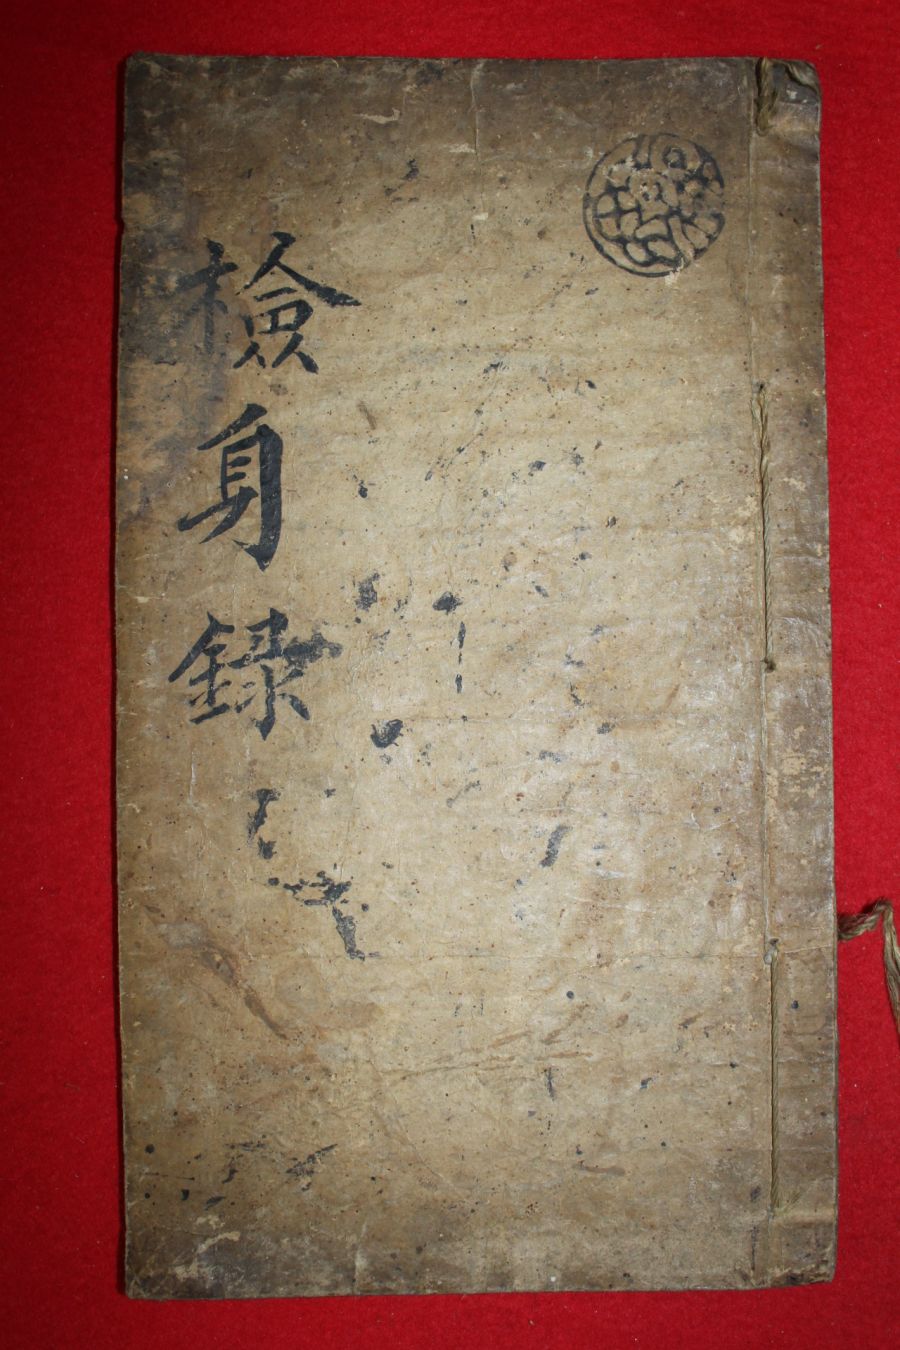 檢身錄